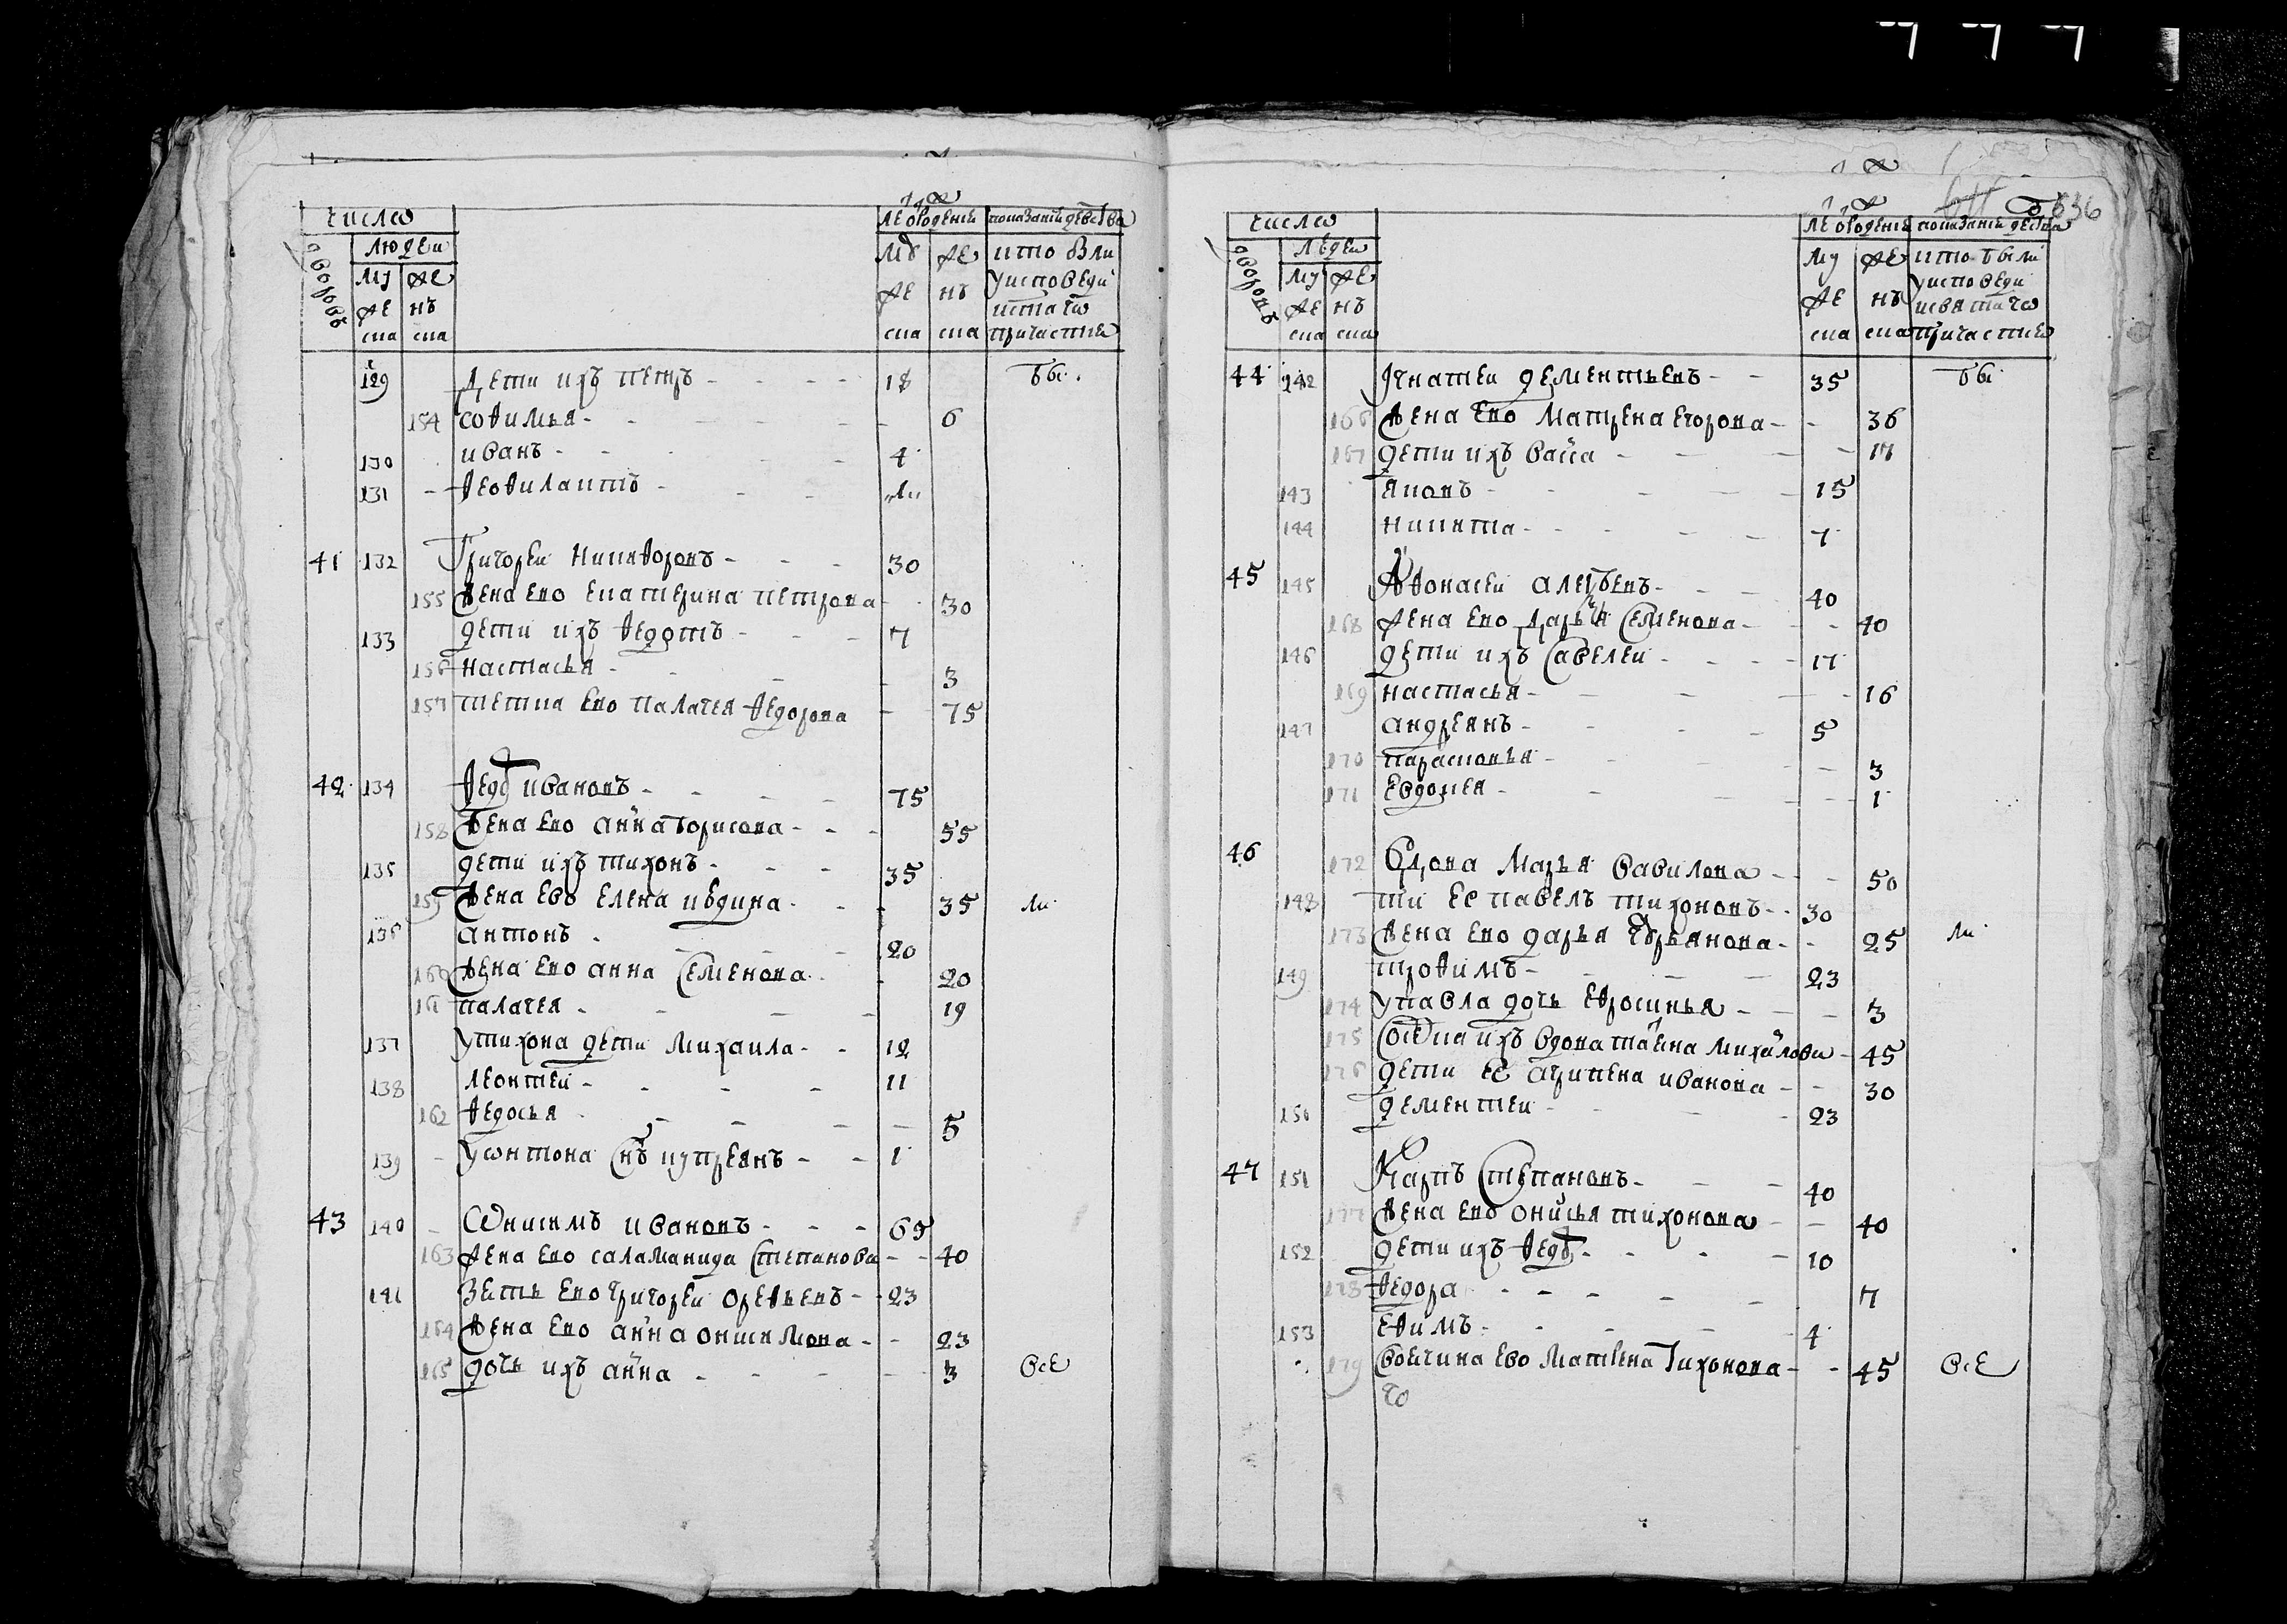 число
лѣ рожденїи показанїи действа
дворовъ людеи
му же
же нъ
ска ска
му же
же нъ
ска ска
кто были
у исповеди
и стаго
причастия
129 дети ихъ петръ - - - - 18 бы
154 софимья - - - 6
130 иванъ - - - 4
131 феофилактъ - - - ли
41 132 Григореи никифоровъ - - - 30
155 жена ево екатерина петрова - 30
133 дети ихъ федотъ - - - 7
156 настасья - - - 3
157 тетка ево палагея федорова - 75
42 134 федо ивановъ - - - - 75
158 жена ево анна борисова - - - 55
135 дети ихъ тихонъ - - - 35
159 жена ево елена - - - 35 ли
136 антонъ - - - 20
160 жена ево анна семенова - 20
161 палагея - - - 19
137 у тихона дети михаила - - 12
138 леонтеи - - - - 11
162 федосья - - - - 5
139 у антона снъ купреянъ - - 1
43 140 онисимъ ивановъ - - - 65
163 жена ево саламанида степанова - - 40
141 зеть ево григореи орефьевъ - - 23
164 жена ево анна онисимова - - 23
165 дочь ихъ анна - - - - 3 все
636
число
лѣ рожденїи показанїи действа
дворовъ людеи
му же
же нъ
ска ска
му же
же нъ
ска ска
кто были
у исповеди
и святаго
причастия
44 142 Игнатеи дементьевъ - - 35 бы
166 жена ево матрена егорова - - 36
167 дети ихъ васса - - - 17
143 яковъ - - - - 15
144 никита - - - - 7
45 145 Афонасеи алексеевъ - - - 40
168 жена ево дарья семенова - - 40
146 дети ихъ савелеи - - - - 17
169 настасья - - - - 16
147 андреянъ - - - - 5
170 парасковья - - - 3
171 евдокея - - - - 1
46 172 вдова марья вавилова - - 50
148 ти ее павелъ тихоновъ - - 30
173 жена ево дарья гурьянова - - 25 ли
149 трофимъ - - - - 23
174 у павла дочь ефросинья - - - 3
175 ихъ вдова татиана михаилова - 45
176 дети ее агрипена иванова - - 30
150 дементеи - - - - 23
47 151 Карпъ степановъ - - - 40
177 жена ево онисья тихонова - - 40
152 дети ихъ федо - - - - 10
178 федора - - - - - 7
153 ефимъ - - - - 4
179 своячина ево матрена тихонова - - 45 все